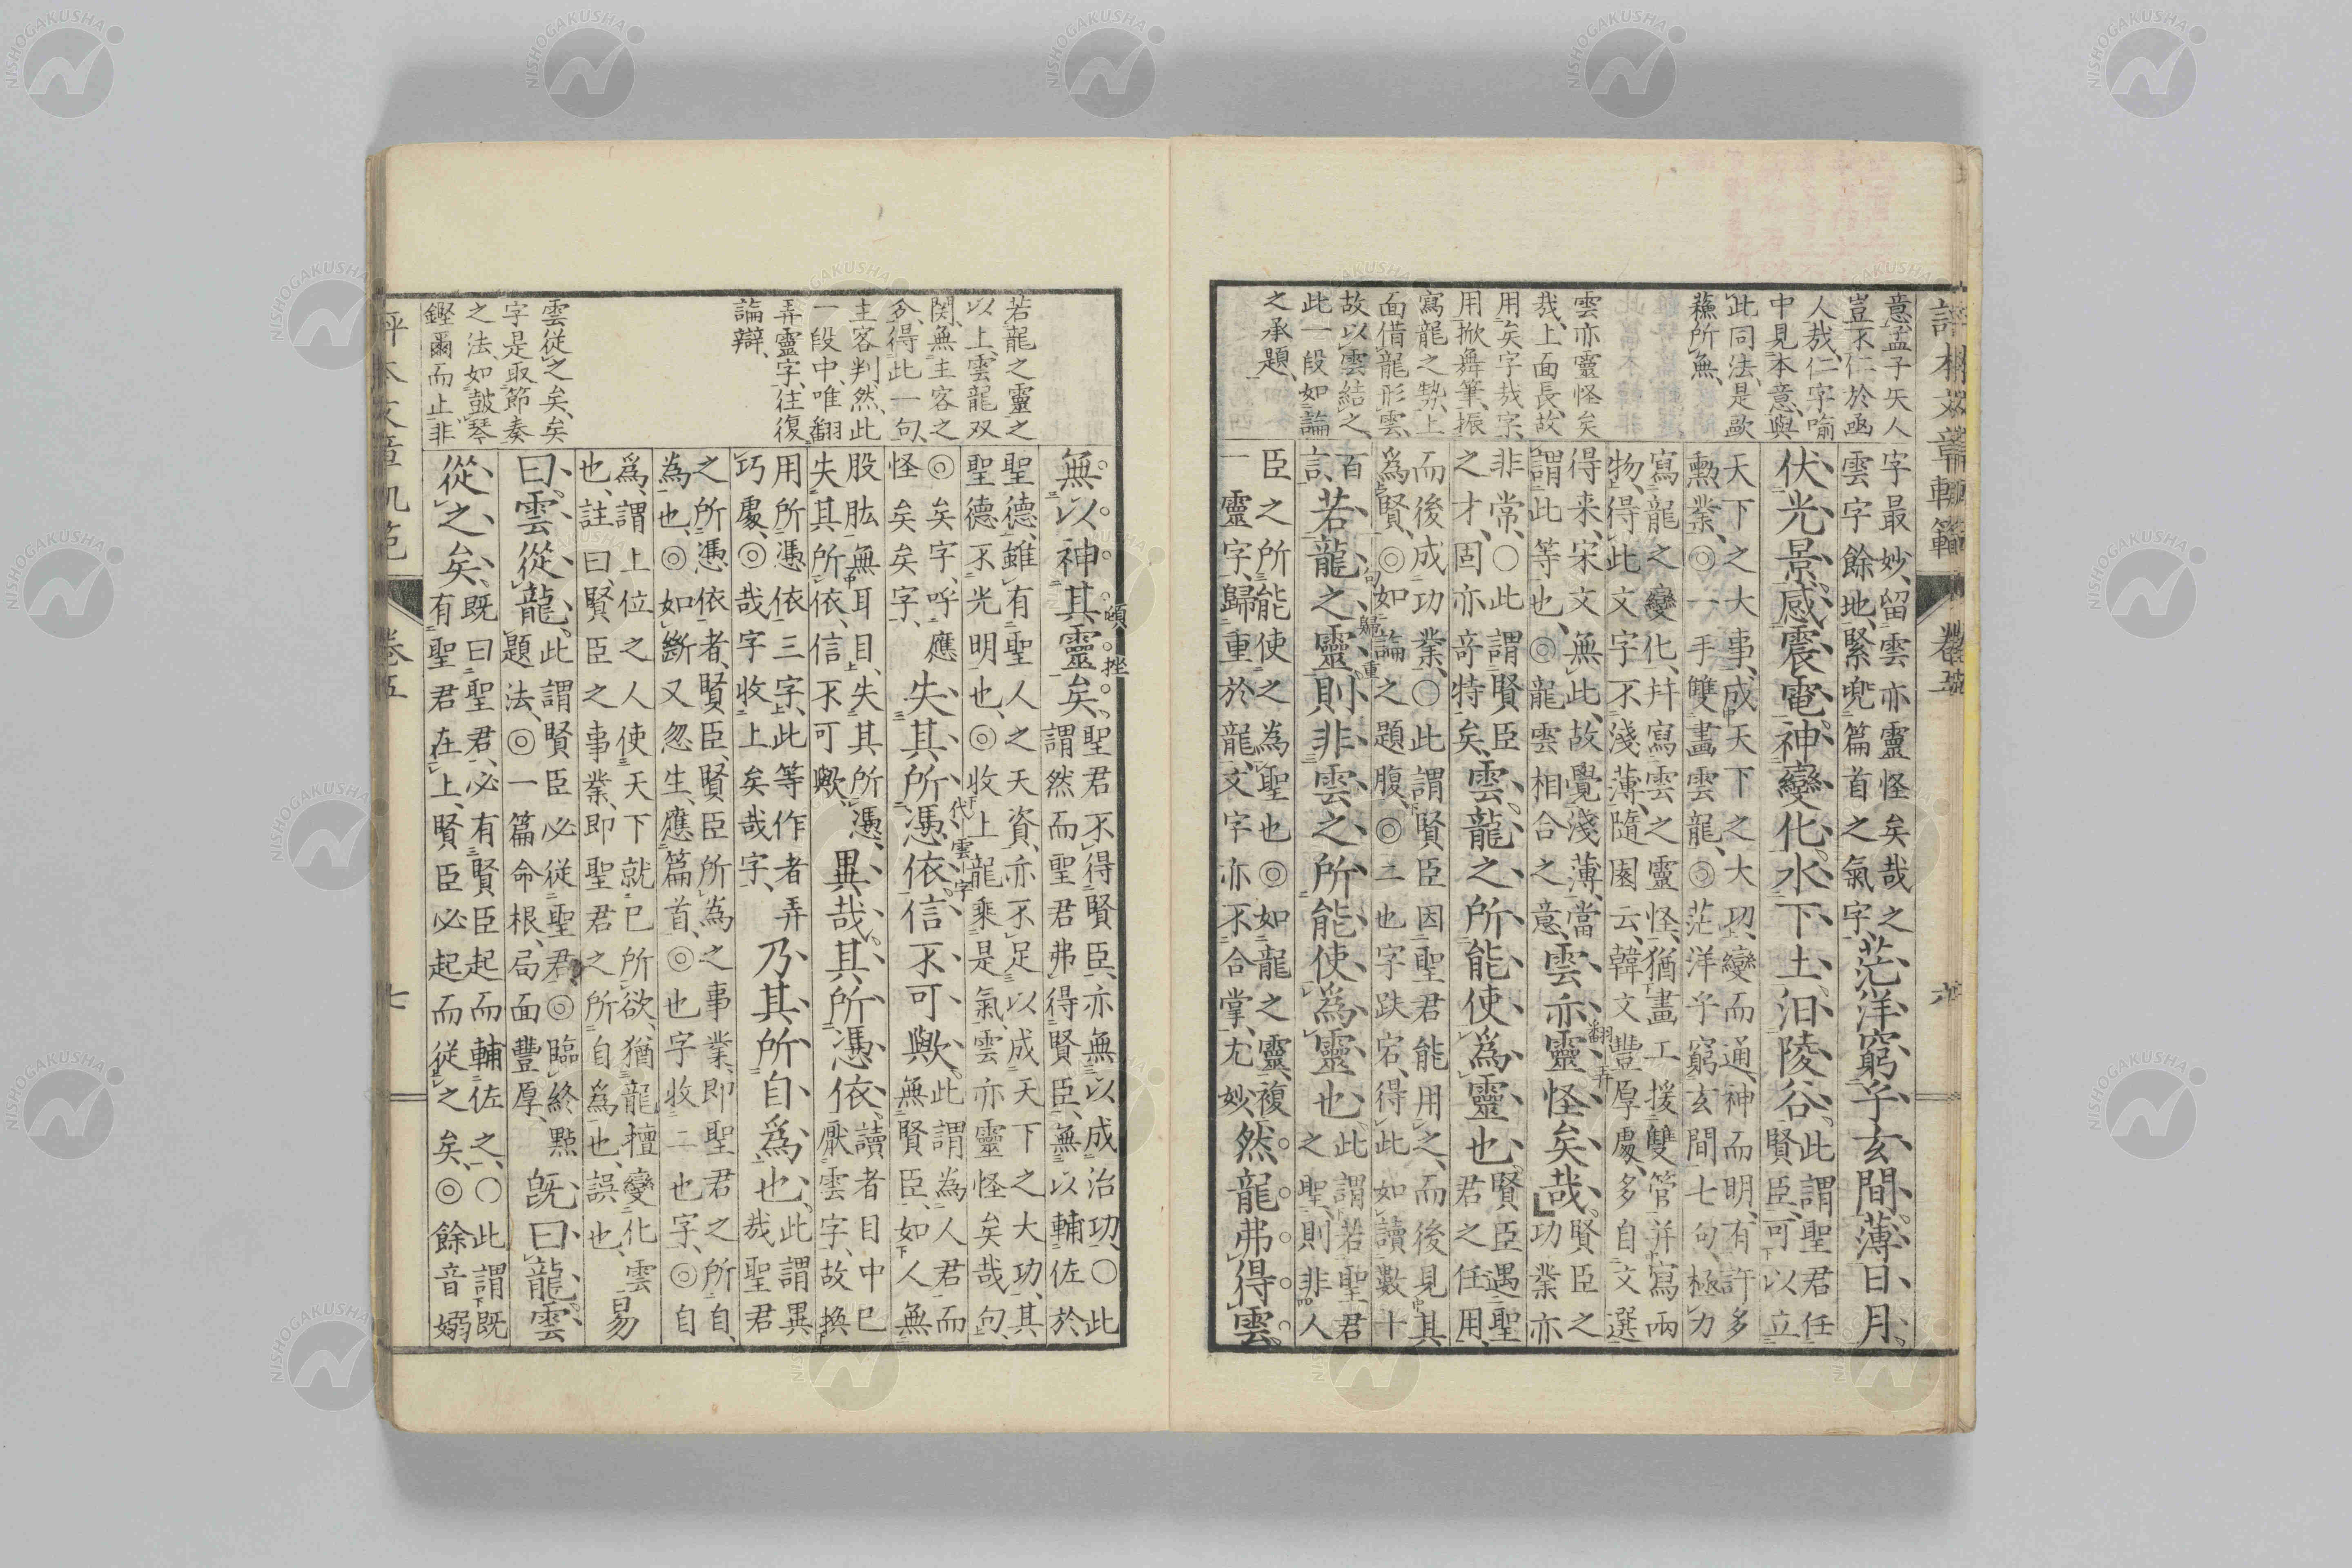 評本文章軌範 卷五 六
意孟子矢人
豈不仁於函
人哉、仁字喻
中見本意、與
此同法、是歐
蘓所無、
雲亦靈怪矣
哉、上面長、故
用矣字哉字、
用掀舞筆、振
寫龍之勢、上
面借龍形雲、
故以雲結之、
此一段如論
之承題、
字最妙、留雲亦靈怪矣哉之
雲字餘地、緊兜篇首之氣字、
茫洋窮乎玄間、薄日月、
伏光景、感震電、神變化、水下土、汩陵谷、
此謂聖君任
賢臣、可以立
天下之大事、成天下之大功、變而通、神而明、有許多
勲業、◎一手雙畫雲龍、◎茫洋乎窮玄間七句、極力
寫龍之變化、幷寫雲之靈怪、猶畫工援雙管并寫兩
物、得此文字不淺薄、隨園云、韓文豐厚處、多自文選
得来、宋文無此、故覺淺薄、當
謂此等也、◎龍雲相合之意、
雲亦靈怪矣哉、
翻弄
賢臣之
功業亦
非常、○此謂賢臣
之才、固亦竒特矣、
雲、龍之所能使爲靈也、
賢臣遇聖
君之任用、
而後成功業、○此謂賢臣因聖君能用之、而後見其
為賢、◎如論之題腹、◎二也字跌宕、得此如讀數十
百
言、
若龍之靈、則非雲之所能使為靈也、
句歸重
此謂若聖君
之聖、則非人
臣之所能使之為聖也◎如龍之靈、複
一靈字、歸重於龍、文字亦不合掌、尤妙、
然龍弗得雲、
若龍之靈之
以上、雲龍双
関、無主客之
分、得此一句、
主客判然、此
一段中、唯翻
弄靈字、往復
論辯、
雲從之矣、矣
字是取節奏
之法、如鼓琴
鏗爾而止、非
無以神其靈矣、
頓挫
聖君不得賢臣、亦無以成治功、○此
謂然而聖君弗得賢臣、無以輔佐於
聖德、雖有聖人之天資、亦不足以成天下之大功、其
聖德不光明也、◎收上龍乘是氣、雲亦靈怪矣哉句、
◎矣字、呼應
怪矣矣字、
失其所憑依、信不可歟、
代雲字
此謂為人君而
無賢臣、如人無
股肱、無耳目、失其所憑、
失其所依、信不可歟、
異哉、其所憑依、
讀者目中已
厭雲字、故換
用所憑依三字、此等作者弄
巧處、◎哉字收上矣哉字、
乃其所自爲也、
此謂異
哉聖君
之所憑依者、賢臣、賢臣所為之事業、即聖君之所自
為也、◎如斷又忽生、應篇首、◎也字收二也字、◎自
爲、謂上位之人使天下就已所欲、猶龍擅變化雲
也、註曰、賢臣之事業、即聖君之所自爲也、誤也、
易
曰、雲從龍、
此謂賢臣必從聖君、◎臨終點
題法、◎一篇命根、局面豐厚、
旣曰、龍、雲
從之矣、
既曰聖君、必有賢臣起而輔佐之、○此謂既
有聖君在上、賢臣必起而從之矣、◎餘音嫋
卷五 七